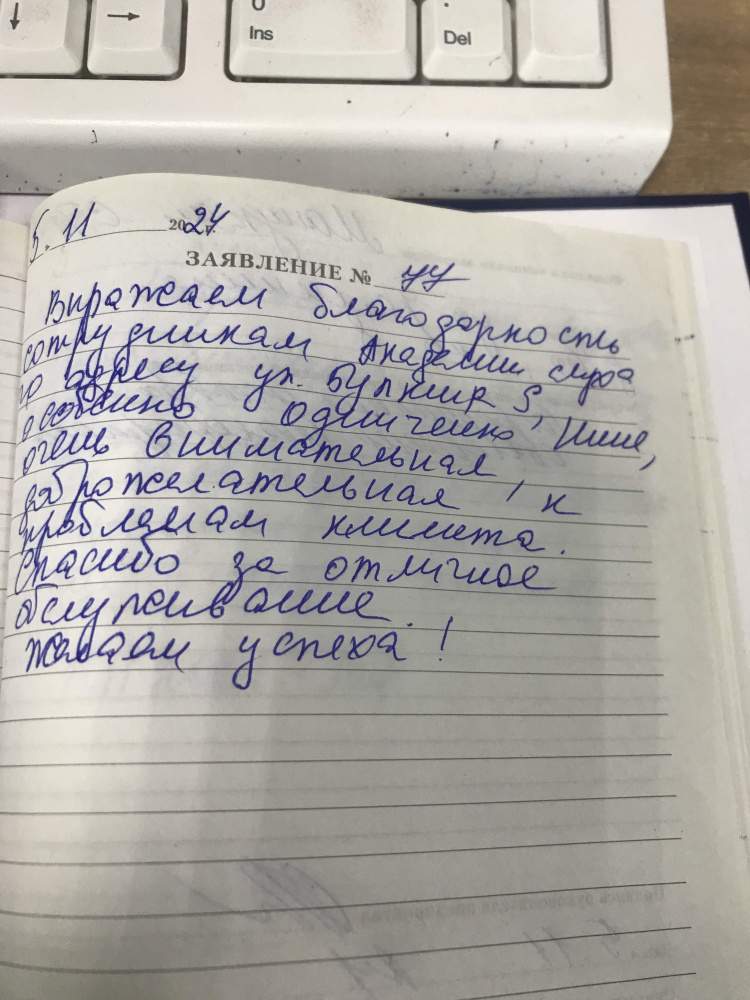 Ins
Del
5. 11 2024
ЗАЯВЛЕНИЕ № 44
Выражаем благодарность
сотрудникам Академии слуха
по адресу ул.
особенно Нине,
очень внимательная,
доброжелательная, к
проблемам клиента.
Спасибо за отличное
обслуживание.
Желаем успеха!